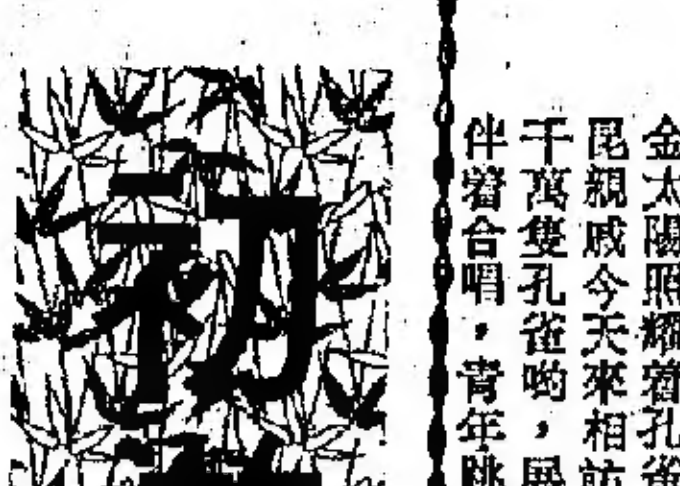 金太陽照耀着孔雀
昆親戚今天來相訪
千萬隻孔雀喲，展
伴着合唱，青年跳
初